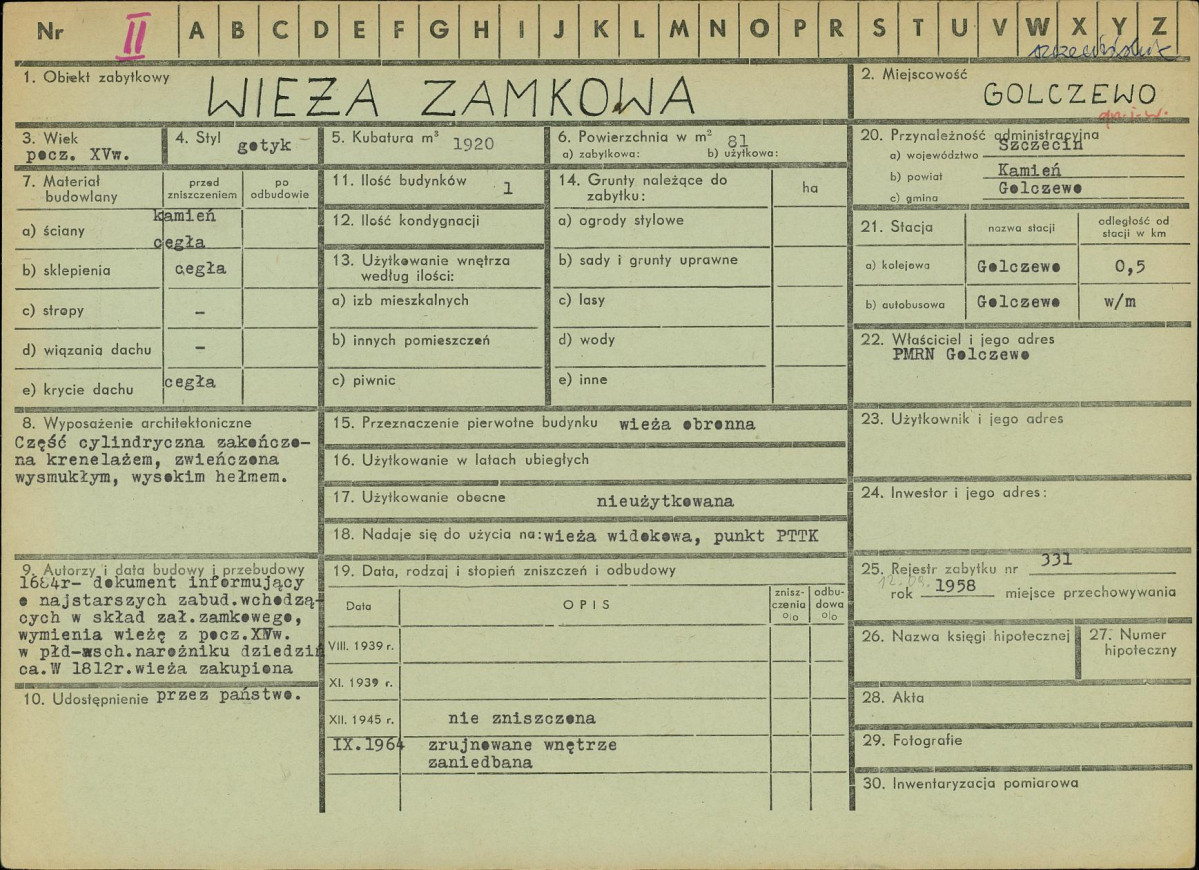 Nr II A B C D E F G H I J K L M N O P R S T U V W X Y Z
1. Obiekt zabytkowy
WIEŻA ZAMKOWA
2. Miejscowość
GOLCZEWO
3. Wiek
pocz. XVw.
4. Styl gotyk
5. Kubatura m³ 1920
6. Powierzchnia w m² 81
a) zabytkowa: b) użytkowa:
7. Materiał budowlany
przed zniszczeniem
po odbudowie
a) ściany kamień
cegła
b) sklepienia cegła
c) stropy –
d) wiązania dachu –
e) krycie dachu cegła
8. Wyposażenie architektoniczne
Część cylindryczna zakończo-
na krenelażem, zwieńczona
wysmukłym, wysokim hełmem.
9. Autorzy i data budowy i przebudowy
1684r- dokument informujący
o najstarszych zabud.wchodzą-
cych w skład zał.zamkowego,
wymienia wieżę z pocz.XVw.
w płd-wsch.narożniku dziedziń
ca.W 1812r.wieża zakupiona
10. Udostępnienie przez państwo.
11. Ilość budynków 1
12. Ilość kondygnacji
13. Użytkowanie wnętrza
według ilości:
a) izb mieszkalnych
b) innych pomieszczeń
c) piwnic
14. Grunty należące do
zabytku:
ha
a) ogrody stylowe
b) sady i grunty uprawne
c) lasy
d) wody
e) inne
15. Przeznaczenie pierwotne budynku wieża obronna
16. Użytkowanie w latach ubiegłych
17. Użytkowanie obecne nieużytkowana
18. Nadaje się do użycia na: wieża widokowa, punkt PTTK
19. Data, rodzaj i stopień zniszczeń i odbudowy
Data
OPIS
znisz-
czenia
%
odbu-
dowa
%
VIII. 1939 r.
XI. 1939 r.
XII. 1945 r. nie zniszczona
IX.1964 zrujnowane wnętrze
zaniedbana
20. Przynależność administracyjna
a) województwo Szczecin
b) powiat Kamień
c) gmina Golczewo
21. Stacja
nazwa stacji
odległość od
stacji w km
a) kolejowa Golczewo 0,5
b) autobusowa Golczewo w/m
22. Właściciel i jego adres
PMRN Golczewo
23. Użytkownik i jego adres
24. Inwestor i jego adres:
25. Rejestr zabytku nr 331
rok 1958 miejsce przechowywania
26. Nazwa księgi hipotecznej
27. Numer
hipoteczny
28. Akta
29. Fotografie
30. Inwentaryzacja pomiarowa